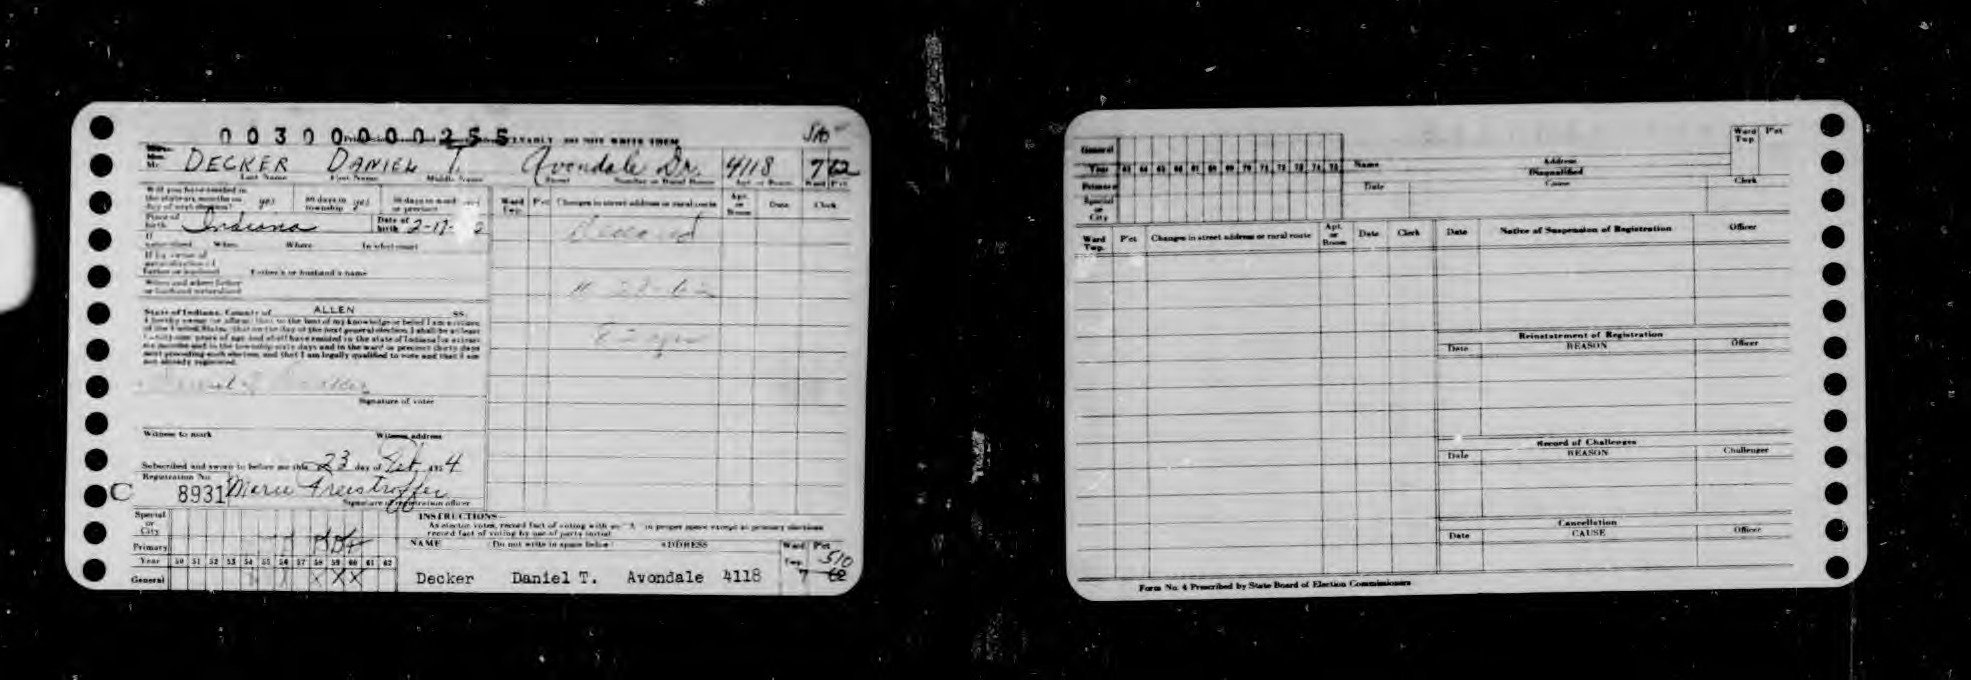 00300000255 DO NOT WRITE THEM
Mr. DECKER DANIEL T. Avondale Dr. 4118 7 62
Last Name First Name Middle Name Street Number or Rural Route Apt. or Room Ward Pct
Will you have resided in
the state six months on yes 60 days in yes 30 days in ward
day of next election? township or precinct
Place of birth Indiana Date of birth 2-17-
If naturalized When Where In what court
If by virtue of
naturalization of
Father or husband Father's or husband's name
When and where father
or husband naturalized
Ward Twp. Pct Changes in street address or rural route Apt. or Room Date Clerk
State of Indiana, County of ALLEN SS.
I hereby swear (or affirm) that to the best of my knowledge or belief I am a citizen
of the United States, that on the day of the next general election I shall be at least
twenty-one years of age and shall have resided in the state of Indiana
six months and in the township sixty days and in the ward or precinct thirty days
next preceding such election, and that I am legally qualified to vote and that I am
not already registered.
Signature of voter
Witness to mark Witness address
Subscribed and sworn to before me this 23 day of 4
Registration No.
C 8931 Marie Freistroffer
Signature of registration officer
Special or City
Primary
Year 50 51 52 53 54 55 56 57 58 59 60 61 62
General X X X
INSTRUCTIONS
As elector votes, record fact of voting with an "X" in proper space except at primary elections
record fact of voting by use of party initial
NAME (Do not write in space below) ADDRESS Ward Twp. Pct
510
Decker Daniel T. Avondale 4118 7 62
General
Year 63 64 65 66 67 68 69 70 71 72 73 74 75
Primary
Special or City
Name Address Ward Twp. Pct
Disqualified
Date Cause Clerk
Ward Twp. Pct Changes in street address or rural route Apt. or Room Date Clerk
Date Notice of Suspension of Registration Officer
Reinstatement of Registration
Date REASON Officer
Record of Challenges
Date REASON Challenger
Cancellation
Date CAUSE Officer
Form No. 4 Prescribed by State Board of Election Commissioners